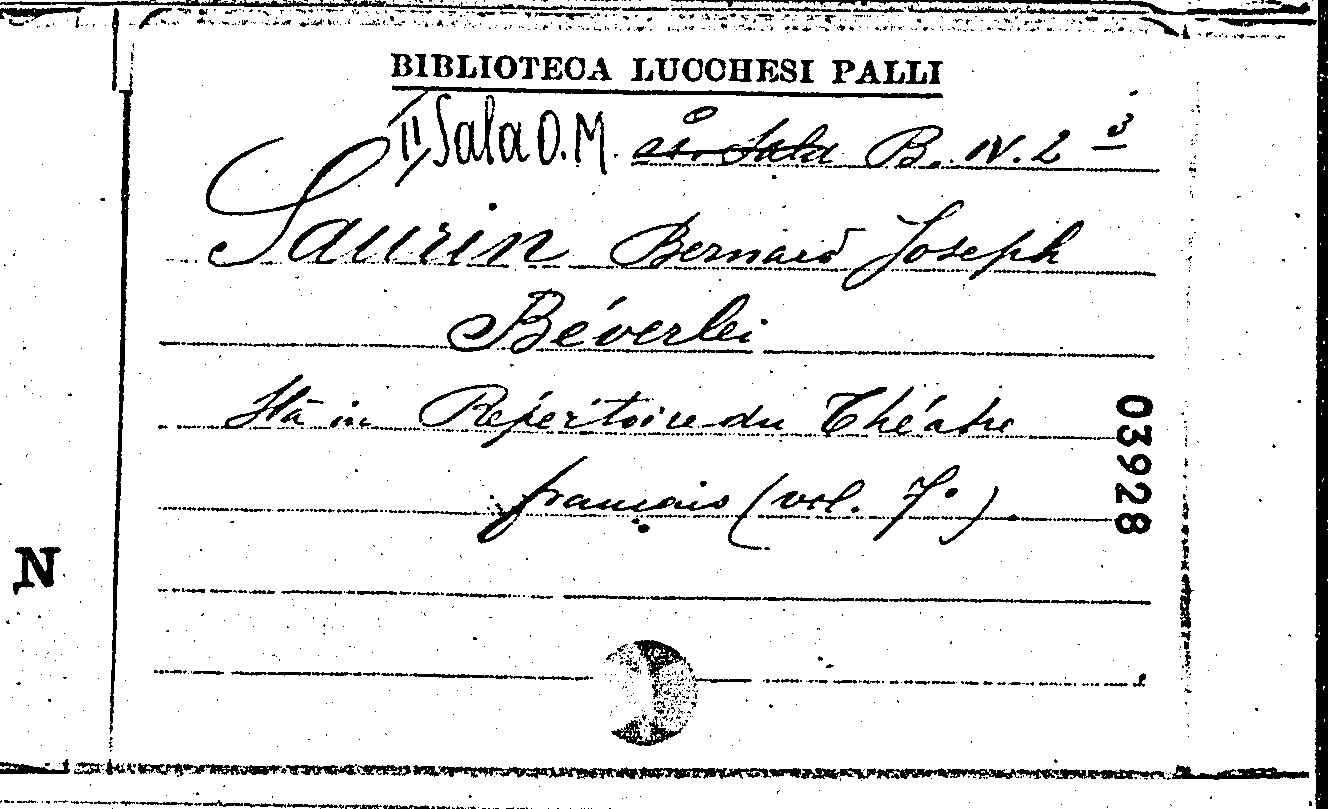 BIBLIOTECA LUCCHESI PALLI
II Sala O.M. Sala B. IV. 2 3
Saurin Bernard Joseph
Béverlei
Stà in Répertoire du Théâtre
français (vol. 7º).
03928
N